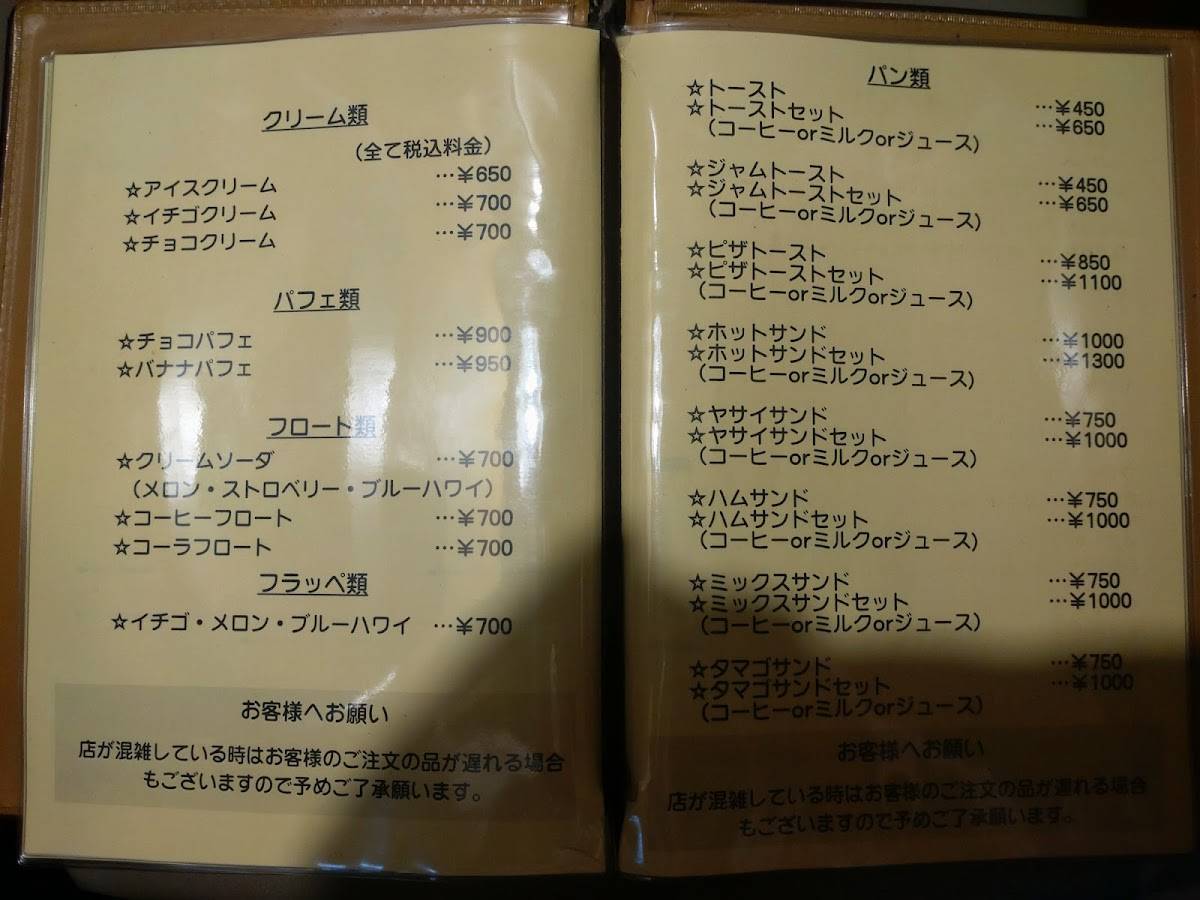 クリーム類
（全て税込料金）
☆アイスクリーム …￥650
☆イチゴクリーム …￥700
☆チョコクリーム …￥700
パフェ類
☆チョコパフェ …￥900
☆バナナパフェ …￥950
フロート類
☆クリームソーダ …￥700
（メロン・ストロベリー・ブルーハワイ）
☆コーヒーフロート …￥700
☆コーラフロート …￥700
フラッペ類
☆イチゴ・メロン・ブルーハワイ …￥700
お客様へお願い
店が混雑している時はお客様のご注文の品が遅れる場合
もございますので予めご了承願います。
パン類
☆トースト …￥450
☆トーストセット …￥650
（コーヒーorミルクorジュース）
☆ジャムトースト …￥450
☆ジャムトーストセット …￥650
（コーヒーorミルクorジュース）
☆ピザトースト …￥850
☆ピザトーストセット …￥1100
（コーヒーorミルクorジュース）
☆ホットサンド …￥1000
☆ホットサンドセット …￥1300
（コーヒーorミルクorジュース）
☆ヤサイサンド …￥750
☆ヤサイサンドセット …￥1000
（コーヒーorミルクorジュース）
☆ハムサンド …￥750
☆ハムサンドセット …￥1000
（コーヒーorミルクorジュース）
☆ミックスサンド …￥750
☆ミックスサンドセット …￥1000
（コーヒーorミルクorジュース）
☆タマゴサンド …￥750
☆タマゴサンドセット …￥1000
（コーヒーorミルクorジュース）
お客様へお願い
店が混雑している時はお客様のご注文の品が遅れる場合
もございますので予めご了承願います。